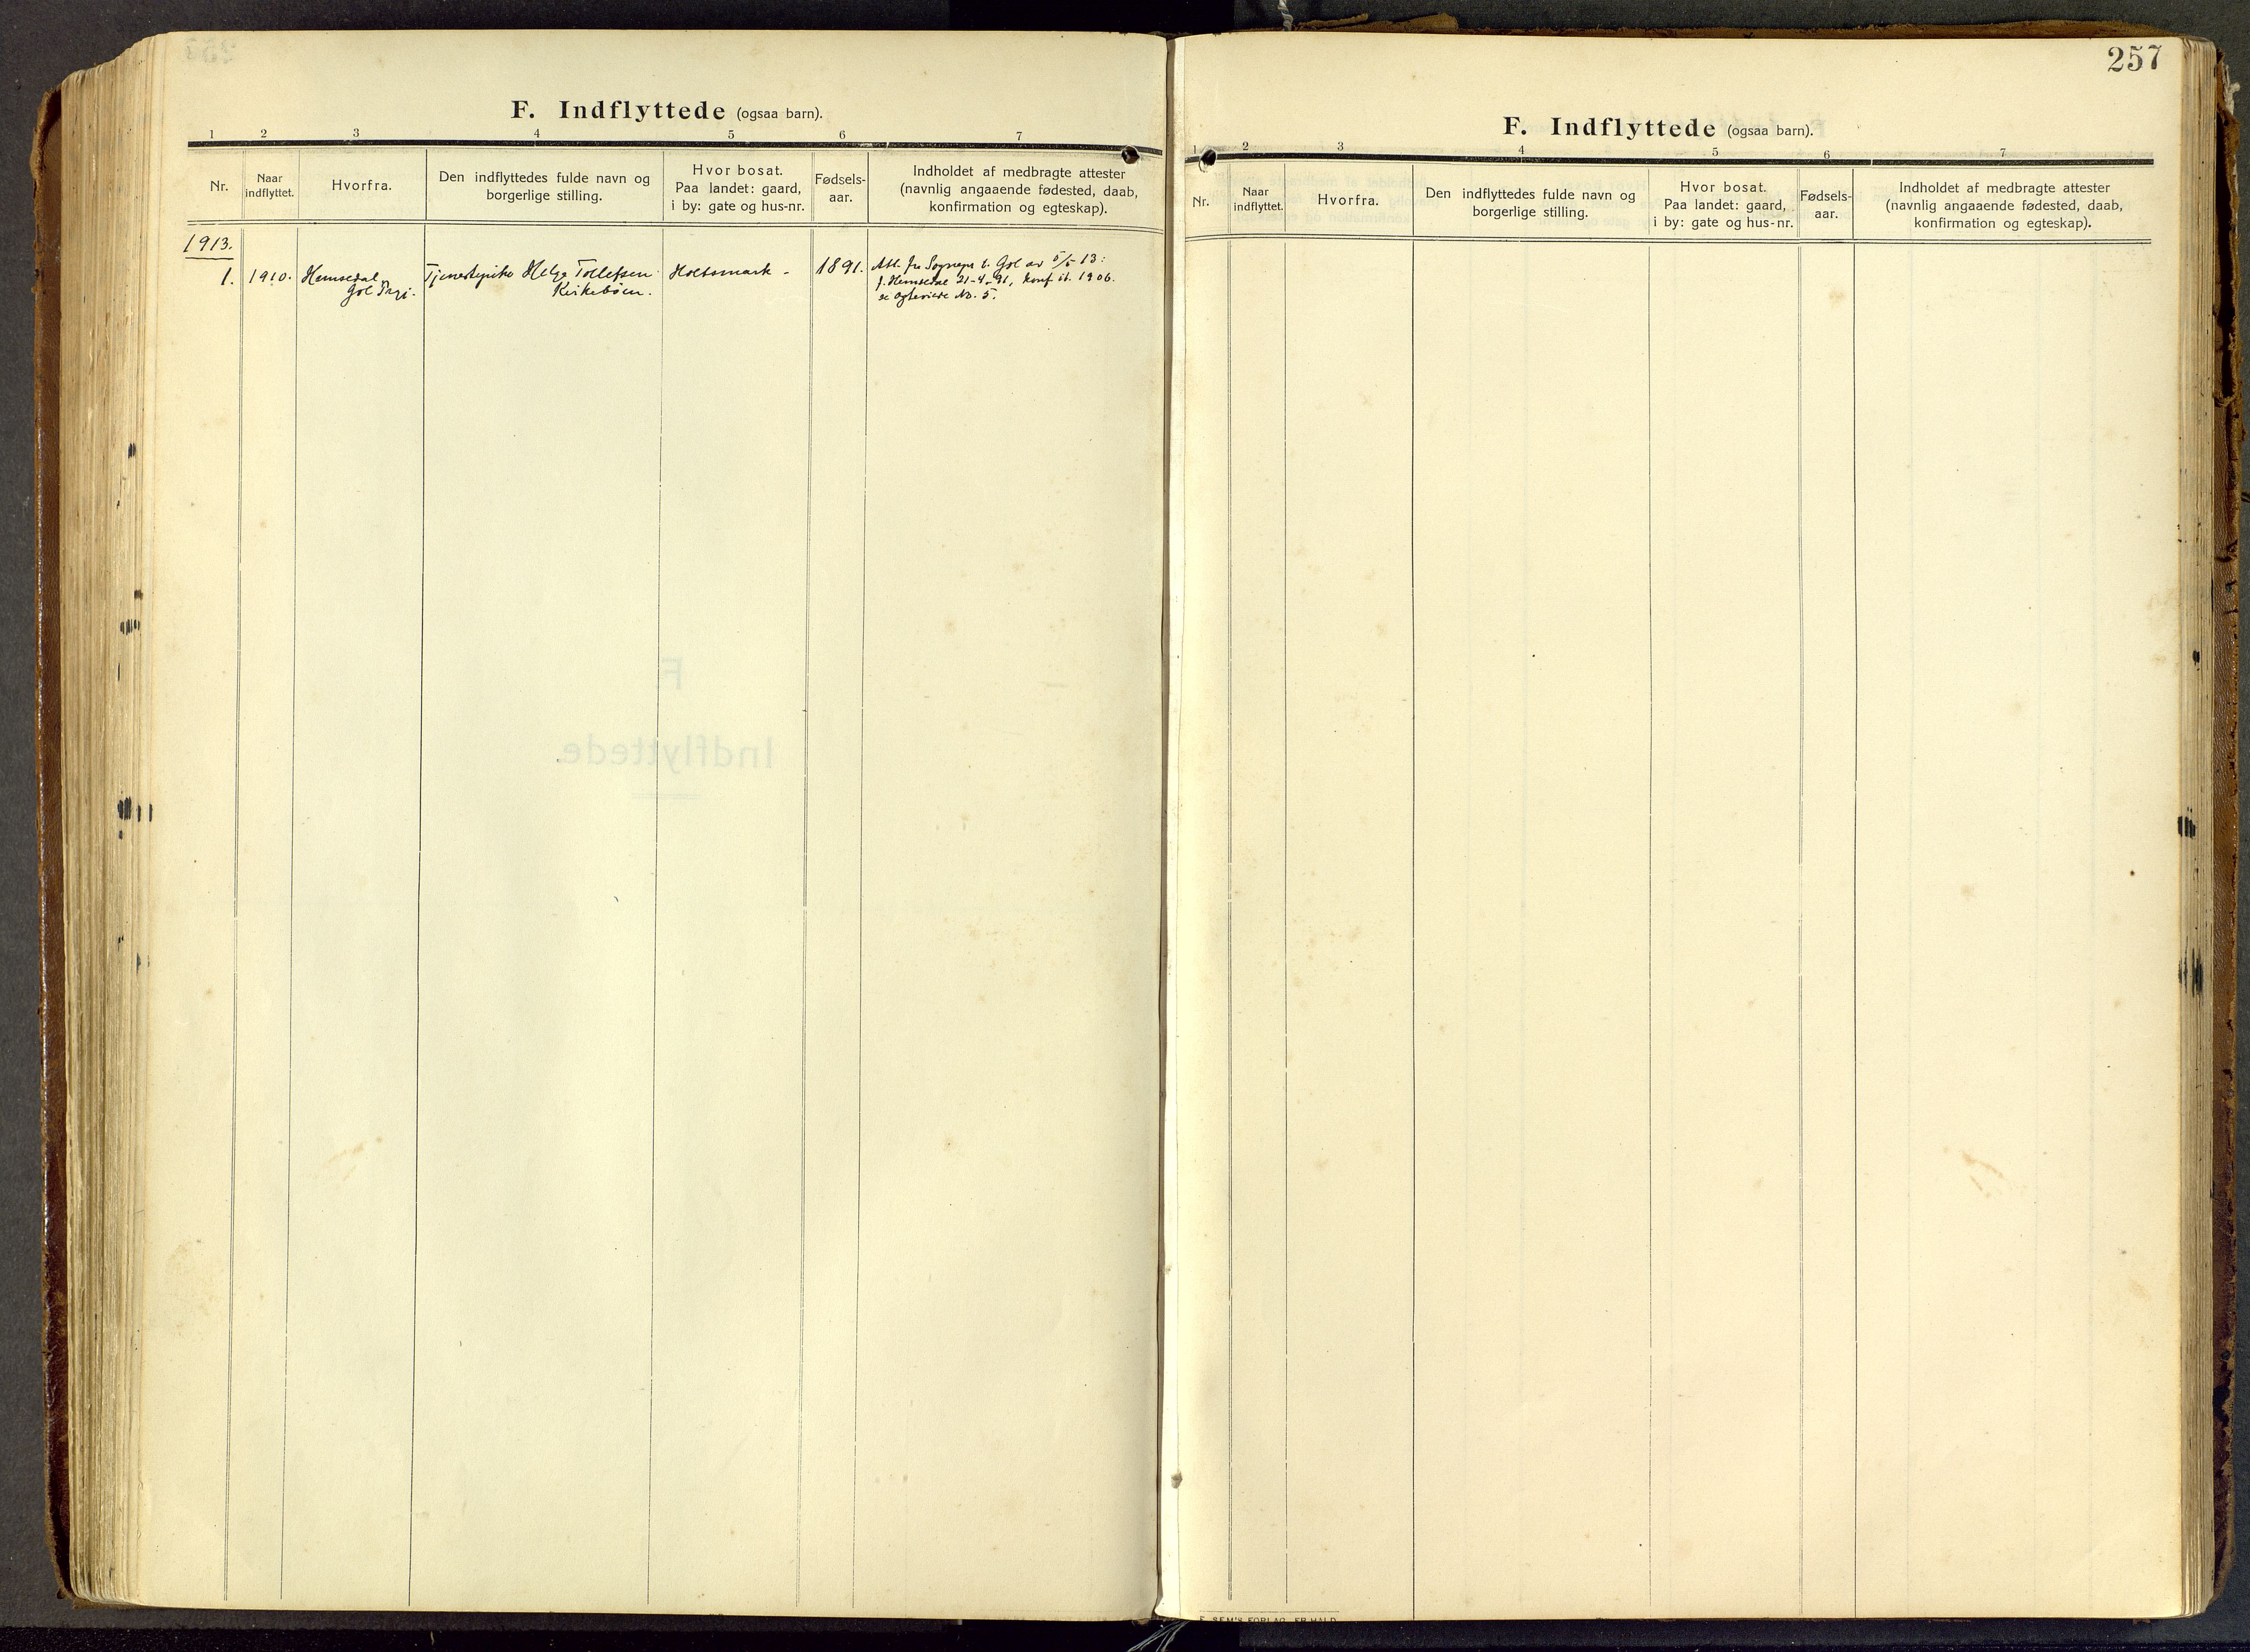 F. Indflyttede (ogsaa barn).
1 2 3 4 5 6 7
Nr.
Naar
indflyttet.
Hvorfra.
Den indflyttedes fulde navn og
borgerlige stilling.
Hvor bosat.
Paa landet: gaard,
i by: gate og hus-nr.
Fødsels-
aar.
Indholdet af medbragte attester
(navnlig angaaende fødested, daab,
konfirmation og egteskap).
1913.
1.
1910.
Hemsedal
Gol
Tjenestepike Helge Tollefsen
Kirkebøen.
Holtsmark -
1891.
Att. fra Sognepr. t. Gol av 5/5 13:
f. Hemsedal 21-4-91, konf. st. 1906.
se Ogteviede No. 5.
257
F. Indflyttede (ogsaa barn).
1 2 3 4 5 6 7
Nr.
Naar
indflyttet.
Hvorfra.
Den indflyttedes fulde navn og
borgerlige stilling.
Hvor bosat.
Paa landet: gaard,
i by: gate og hus-nr.
Fødsels-
aar.
Indholdet af medbragte attester
(navnlig angaaende fødested, daab,
konfirmation og egteskap).
E. SEM'S FORLAG, FR.HALD